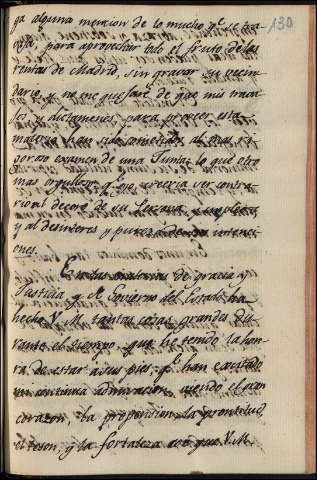 130
ga alguna mencion de lo mucho q.e se tra-
para aprovechar todo el fruto de las
rentas de Madrid, sin gravar su vecin-
dario, y no me quejaré de que mis
los, y dictamenes, para proveer esta
materia, sean sometidos al mas ri-
goroso examen de una Junta, lo que otro
mas orgulloso q.e yo, creeria ver contra-
rio al decoro de su Persona, y empleo,
y al desinteres, y pureza de sus intenci-
ones.
En las materias de gracia y
Justicia, y el Govierno del Estado ha
hecho V. M. tantas cosas grandes du-
rante el tiempo, que he tenido la hon-
ra de estar a sus pies, q.e han excitado
mi continua admiracion, viendo el gran
corazon, la propension, la prontitud,
el teson, y la fortaleza con que V. M.